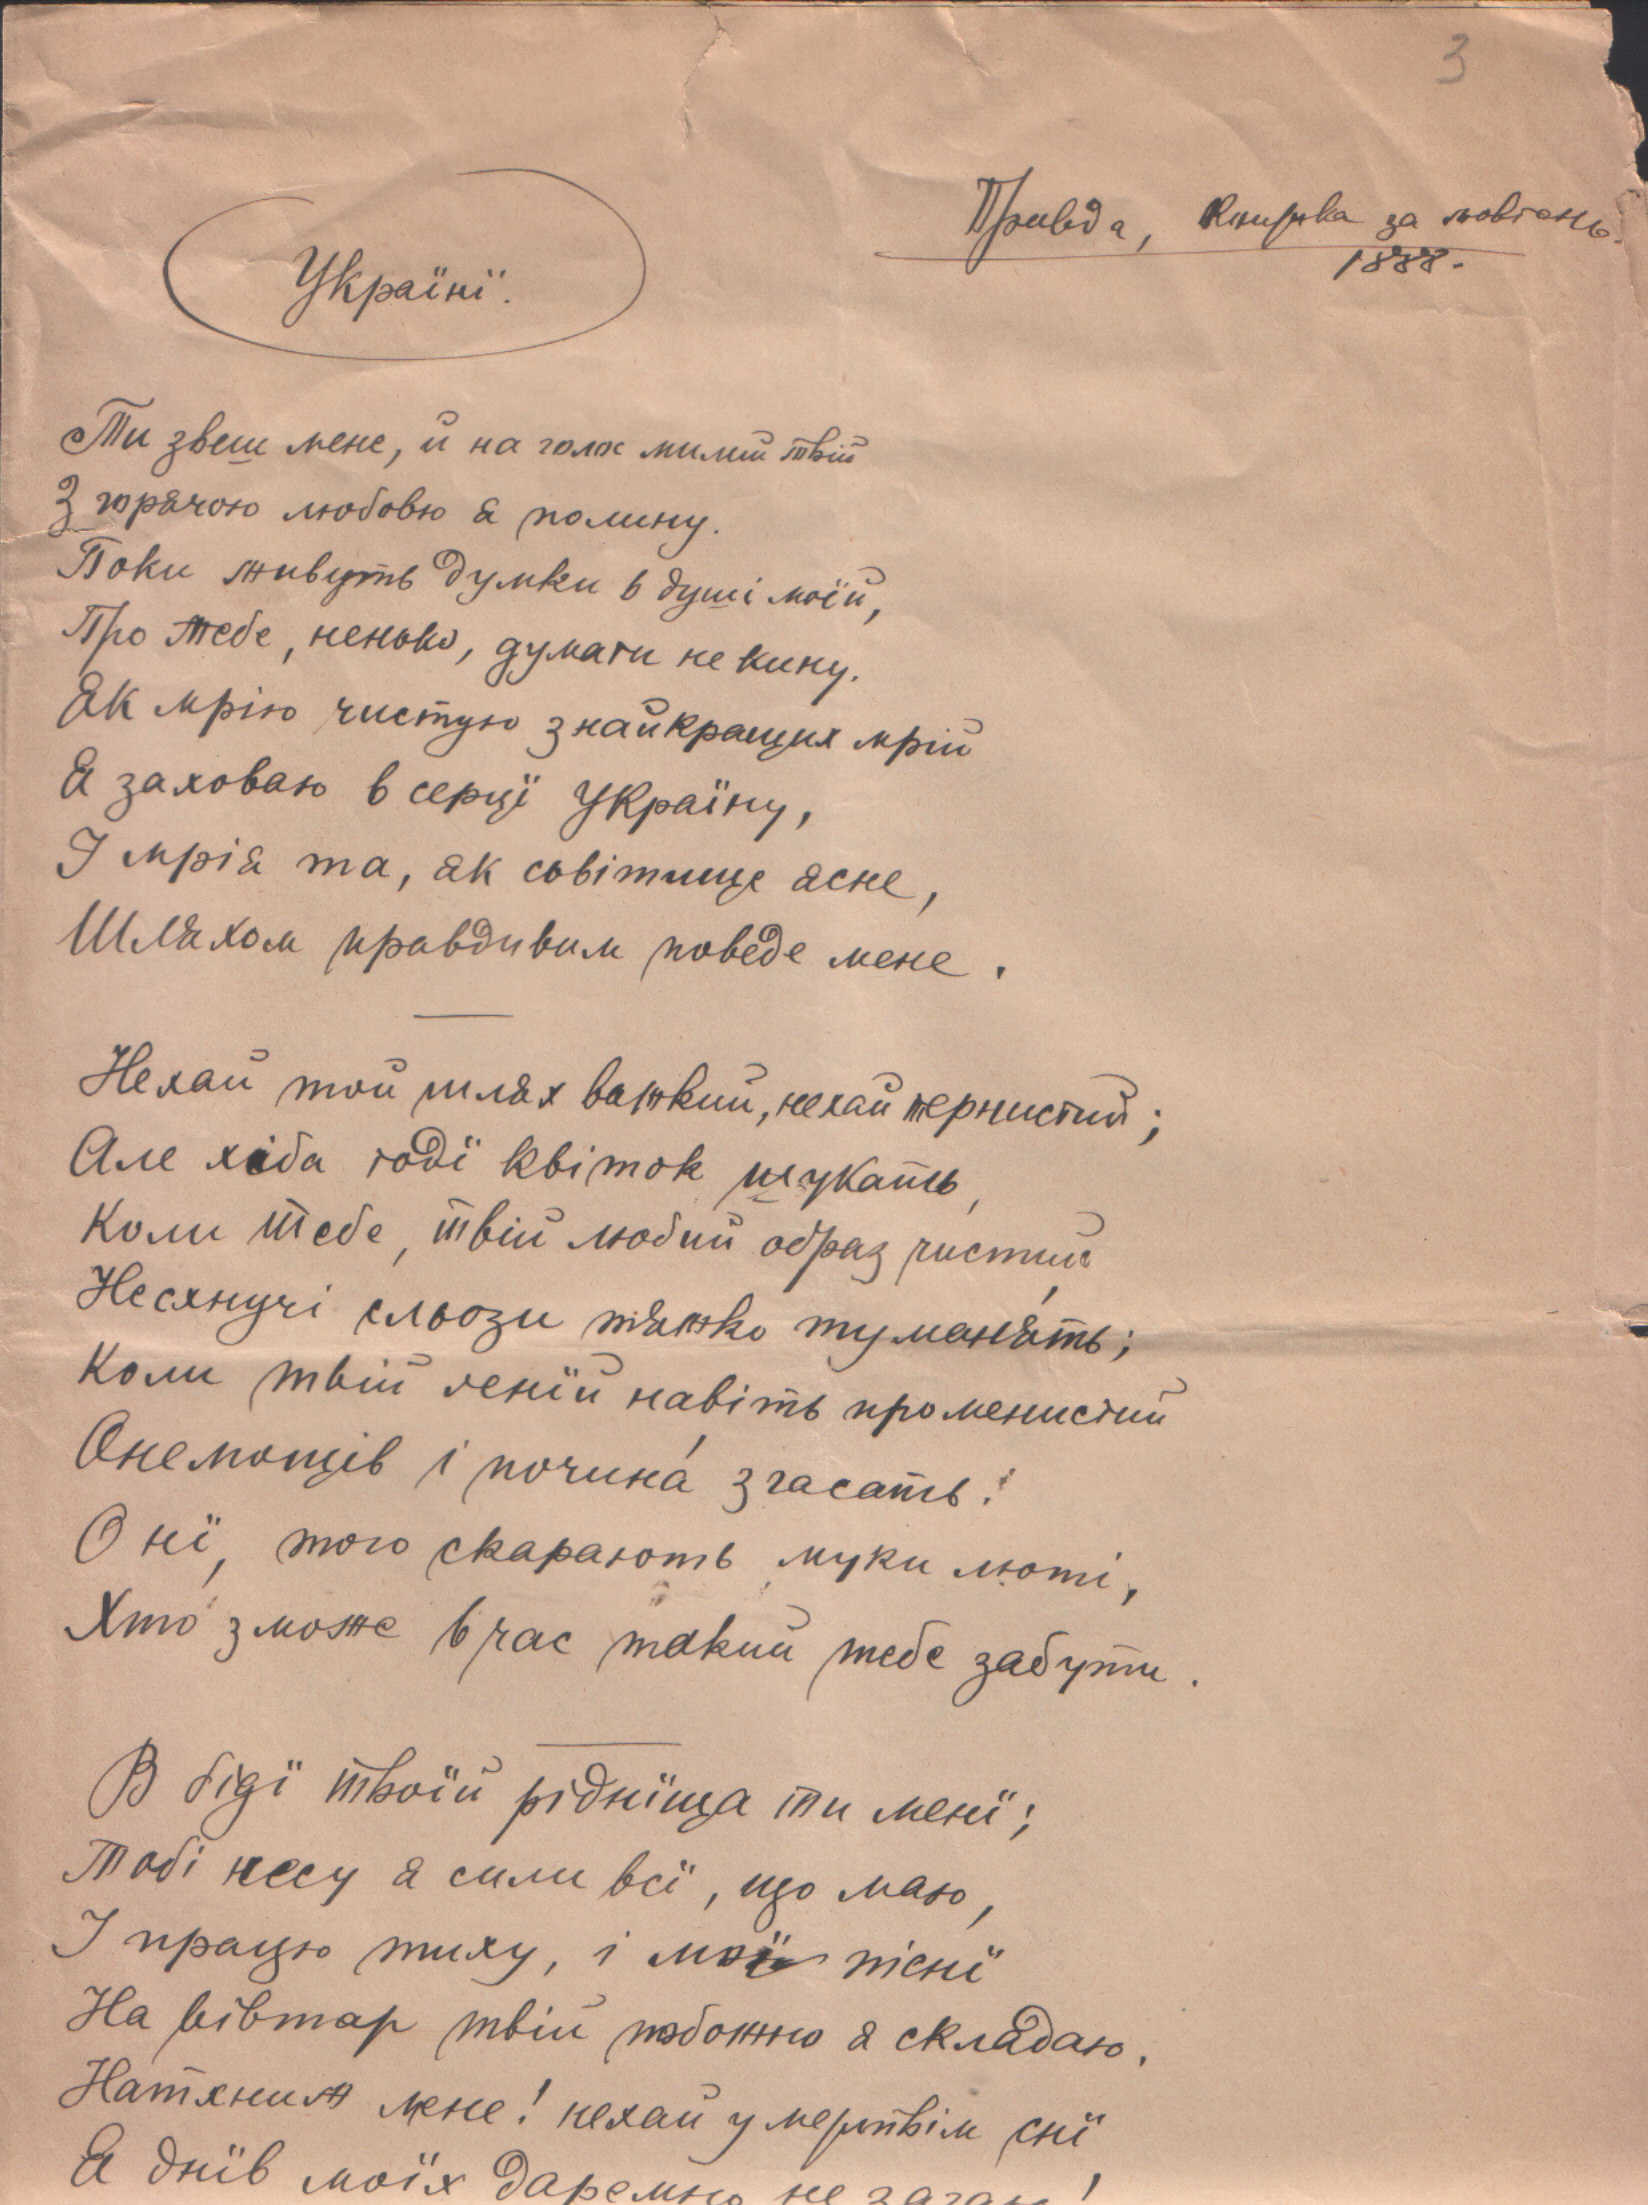 3
Правда, Книжка за жовтень.
1888.
Українї.
Ти звеш мене, й на голос милий твій
З горячою любовю я полину.
Поки живуть думки в душі моїй,
Про тебе, ненько, думати не кину.
Як мрію чистую з найкращих мрій
Я заховаю в серцї Україну,
І мрія та, як сьвітище ясне,
Шляхом правдивим поведе мене.
Нехай той шлях важкий, нехай тернистий;
Але хіба годї квіток шукать,
Коли тебе, твій любий образ чистий,
Несхнучі сльози тяжко туманять;
Коли твій ґенїй навіть променистий
Онемощів і почина́ згасать!
О нї, того скарають муки люті,
Хто зможе в час такий тебе забути.
В бідї твоїй ріднїща ти менї;
Тобі несу я сили всї, що маю,
І працю тиху, і мої піснї
На вівтар твій побожно я складаю.
Натхниж мене! нехай у мертвім снї
Я днїв моїх даремно не загаю!